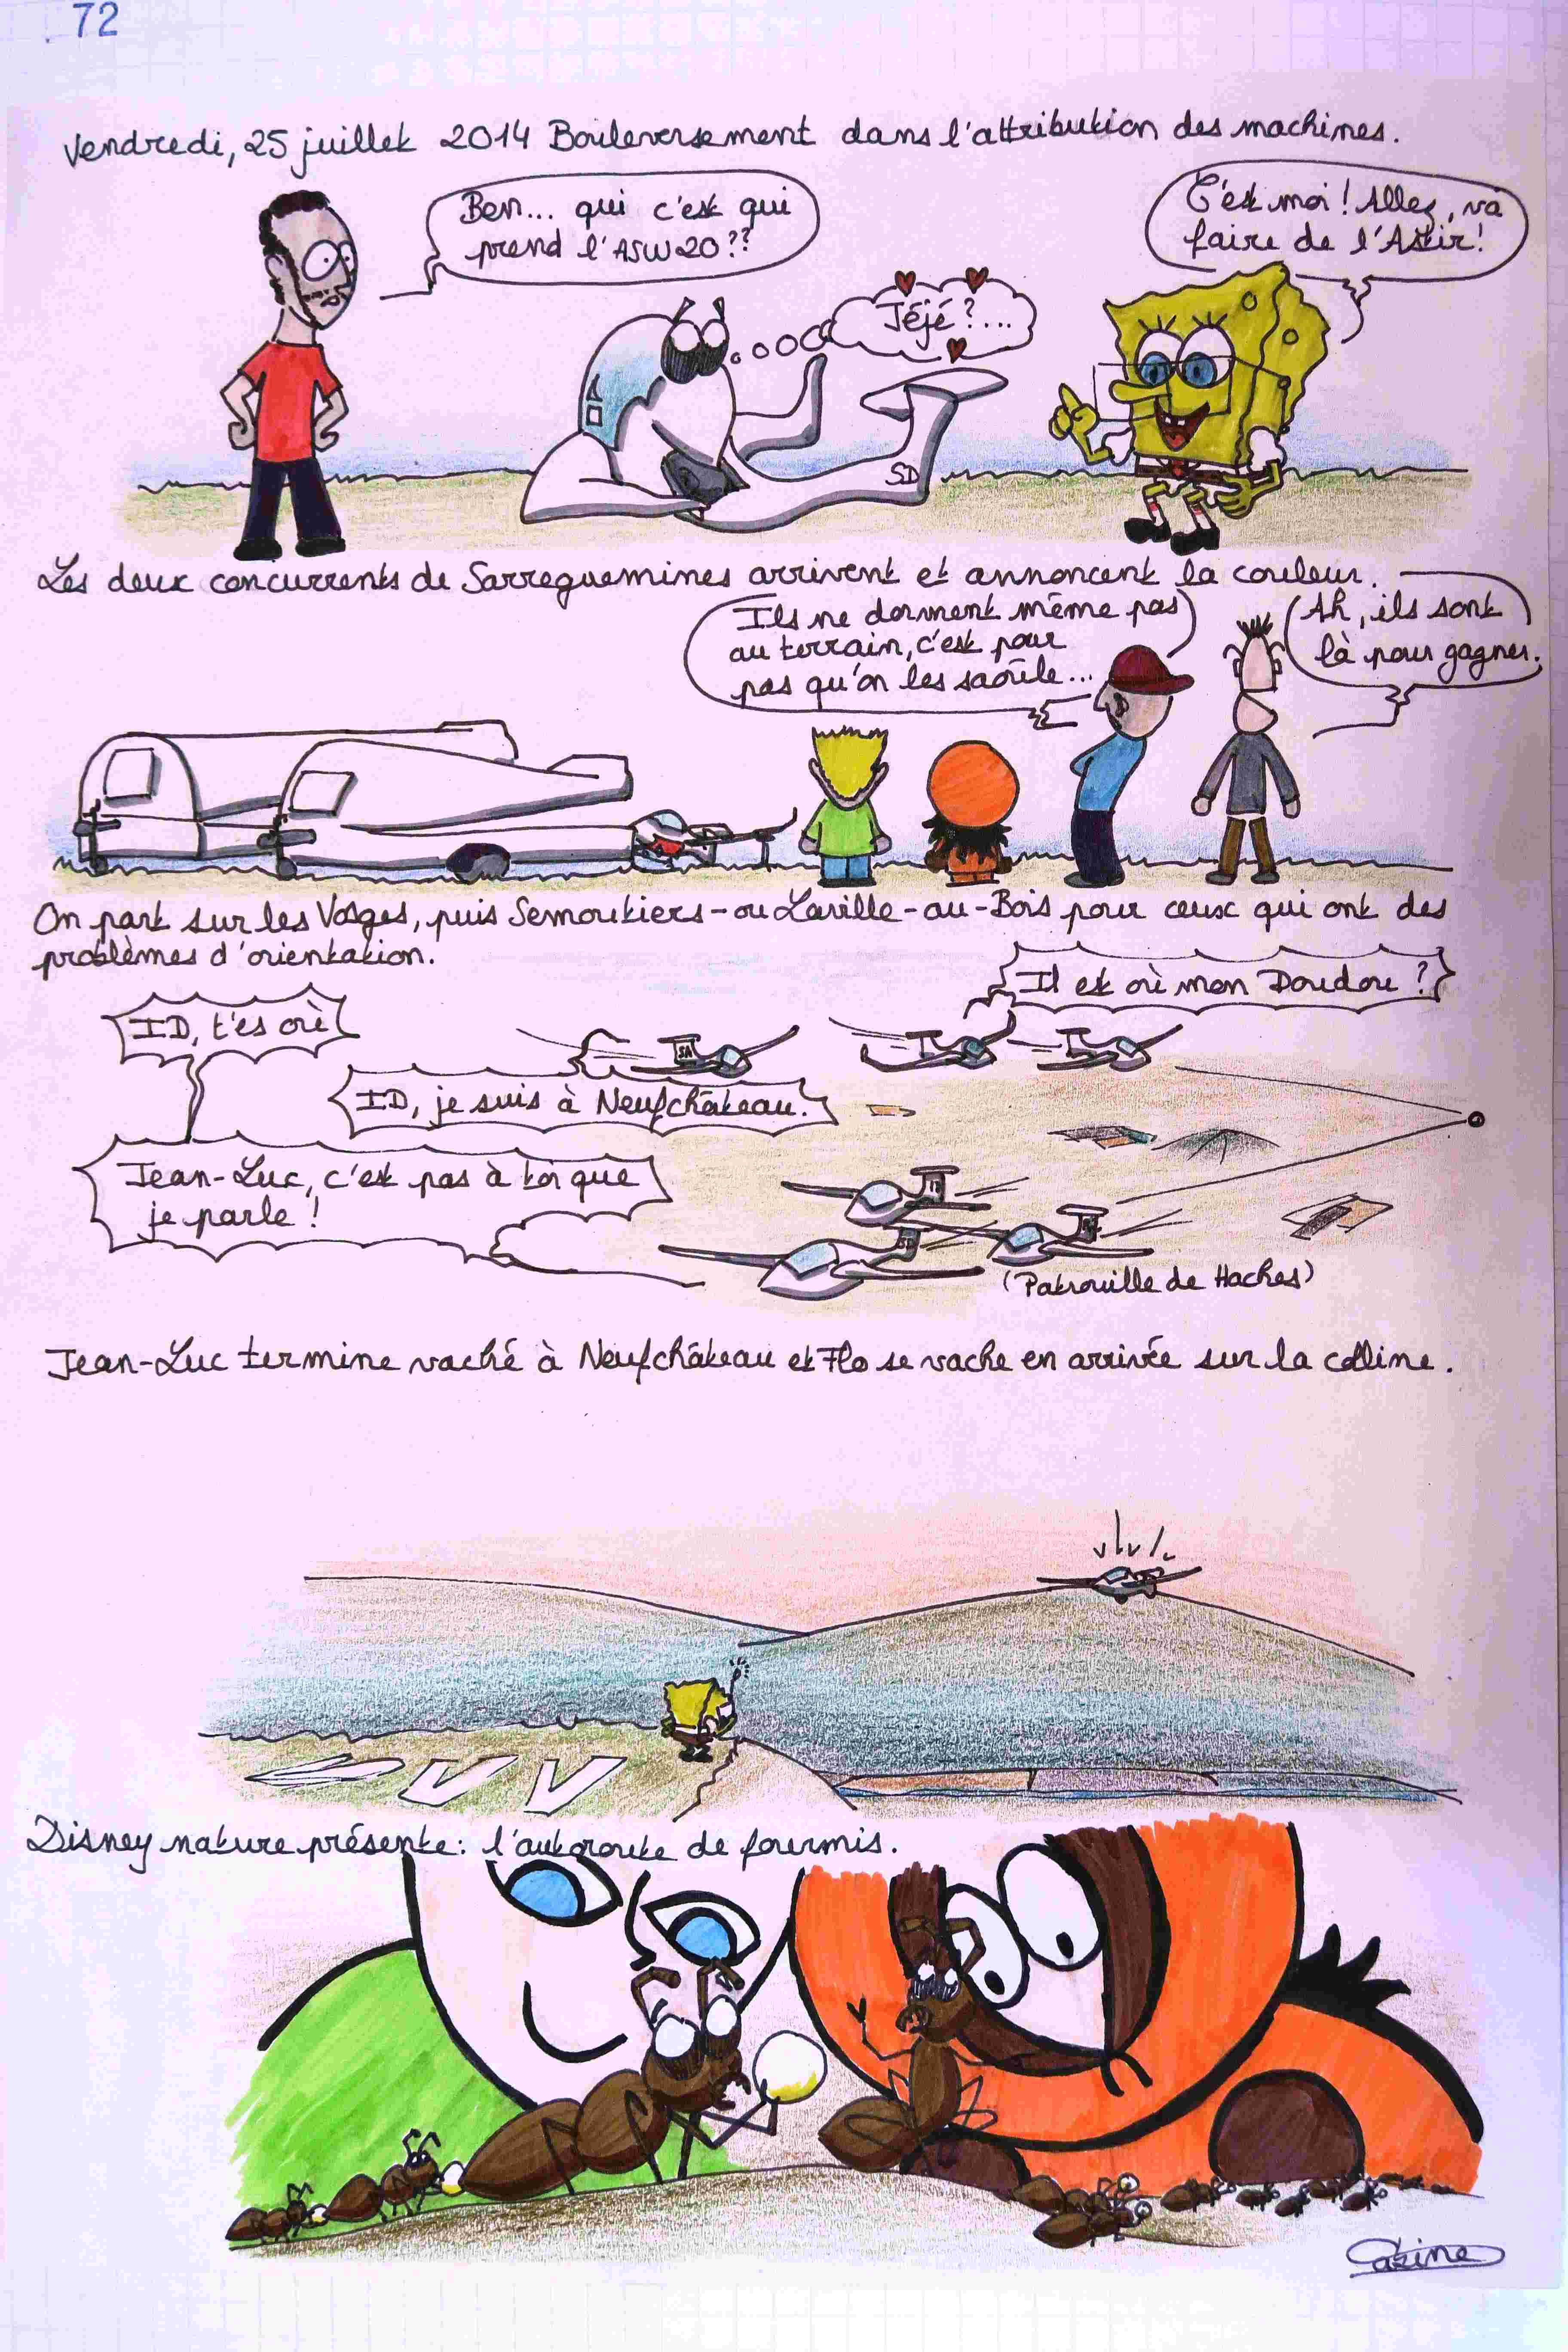 72
Vendredi, 25 juillet 2014 Bouleversement dans l'attribution des machines.
Ben... qui c'est qui
prend l'ASW20??
Jéjé?...
C'est moi! Allez, va
faire de l'Astir!
SD
Les deux concurrents de Sarreguemines arrivent et annoncent la couleur.
Ils ne dorment même pas
au terrain, c'est pour
pas qu'on les saoûle...
Ah, ils sont
là pour gagner.
On part sur les Vosges, puis Semoutiers - ou Laville-au-Bois pour ceux qui ont des
problèmes d'orientation.
Il est où mon Doudou ?
ID, t'es où
SA
ID, je suis à Neufchâteau.
Jean-Luc, c'est pas à toi que
je parle !
SD
(Patrouille de Haches)
Jean-Luc termine vaché à Neufchâteau et Flo se vache en arrivée sur la colline.
Disney nature présente: l'autoroute de fourmis.